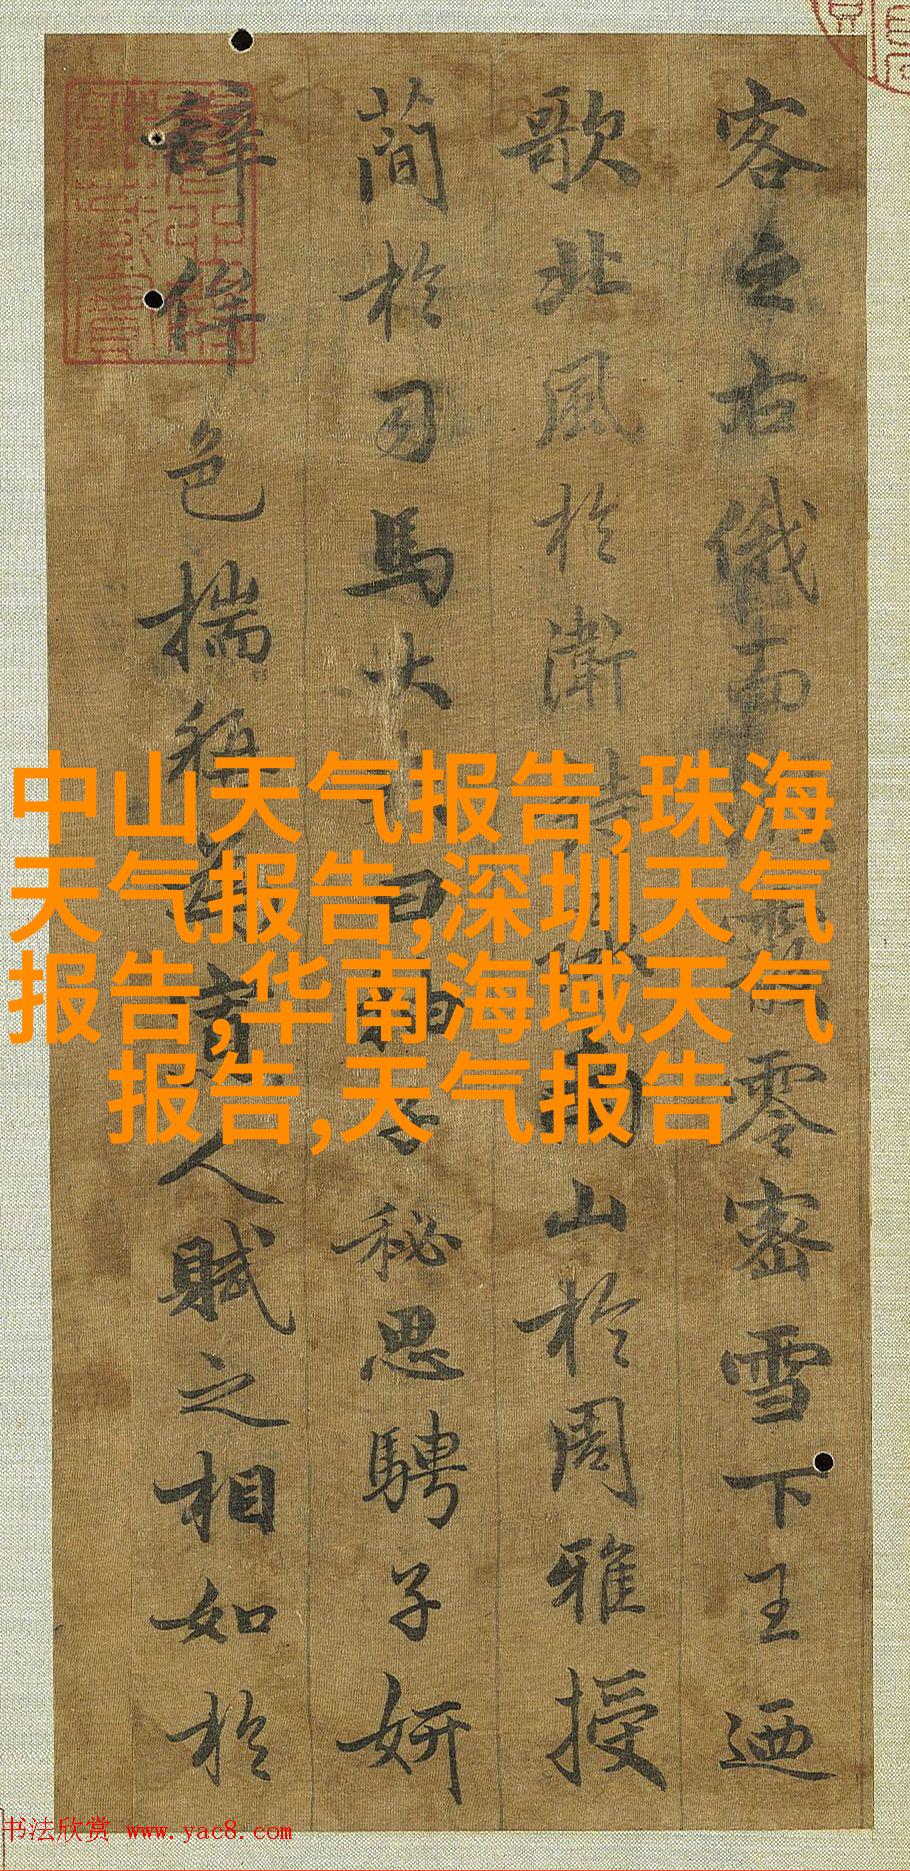 客之右俄而霰零密雪下王迺
歌北風於衛詩詠南山於周雅授
簡於司馬大曰抽子秘思騁子妍
辭侔色揣稱為寡人賦之相如於
中山天气报告,珠海
天气报告,深圳天气
报告,华南海域天气
报告,天气报告
书法欣赏 www.yac8.com